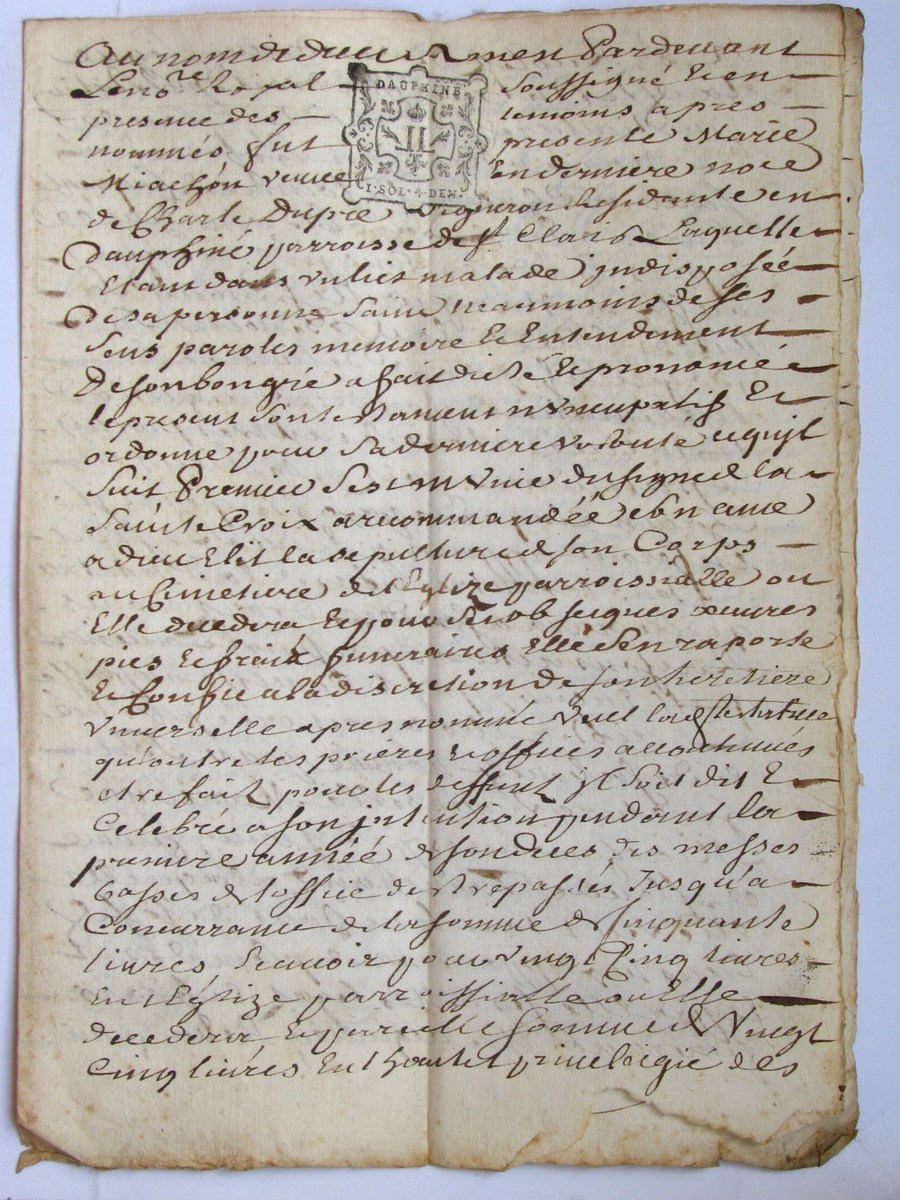 Au nom de dieu Amen Pardevant
Le no.re Royal soussigné et en
presence des temoins apres
nommés fut presente Marie
Miachon veuve en derniere noce
DAUPHINE
I·SOL·4·DEN·
de Charle Dupré vigneron residante en
dauphiné parroisse de st Clair Laquelle
Etant dans un lict malade indisposée
de sa personne saine neanmoins de ses
sens paroles memoire et Entendement
De son bon gré a fait dicté et prononcé
le present son testament nuncupatif Et
ordonne pour sa derniere volonté ce quil
suit Premier sest munie du signe de la
sainte Croix a recommandée son ame
a dieu Elit la sepulture de son Corps
au Cimetiere de l'Eglize parroissialle ou
Elle decedera et pour ses obseques œuvres
pies et fraix funeraires Elle s'en raporte
et Confie a la discretion de son heretiere
universelle apres nommée veut la ditte testatrice
qu'outre les prieres et offices accoutumés
etre fait pour les deffunt jl soit dit Et
Celebré a son jntention pendant la
premiere année de son deces des messes
basses de l'office des trepassés Jusqu'a
Concurrance de la somme de Cinquante
livres, scavoir pour vingt Cinq livres
En l'Eglize parroissialle ou Elle
decedera et pareille somme de Vingt
Cinq livres En l'hautel privelegié des